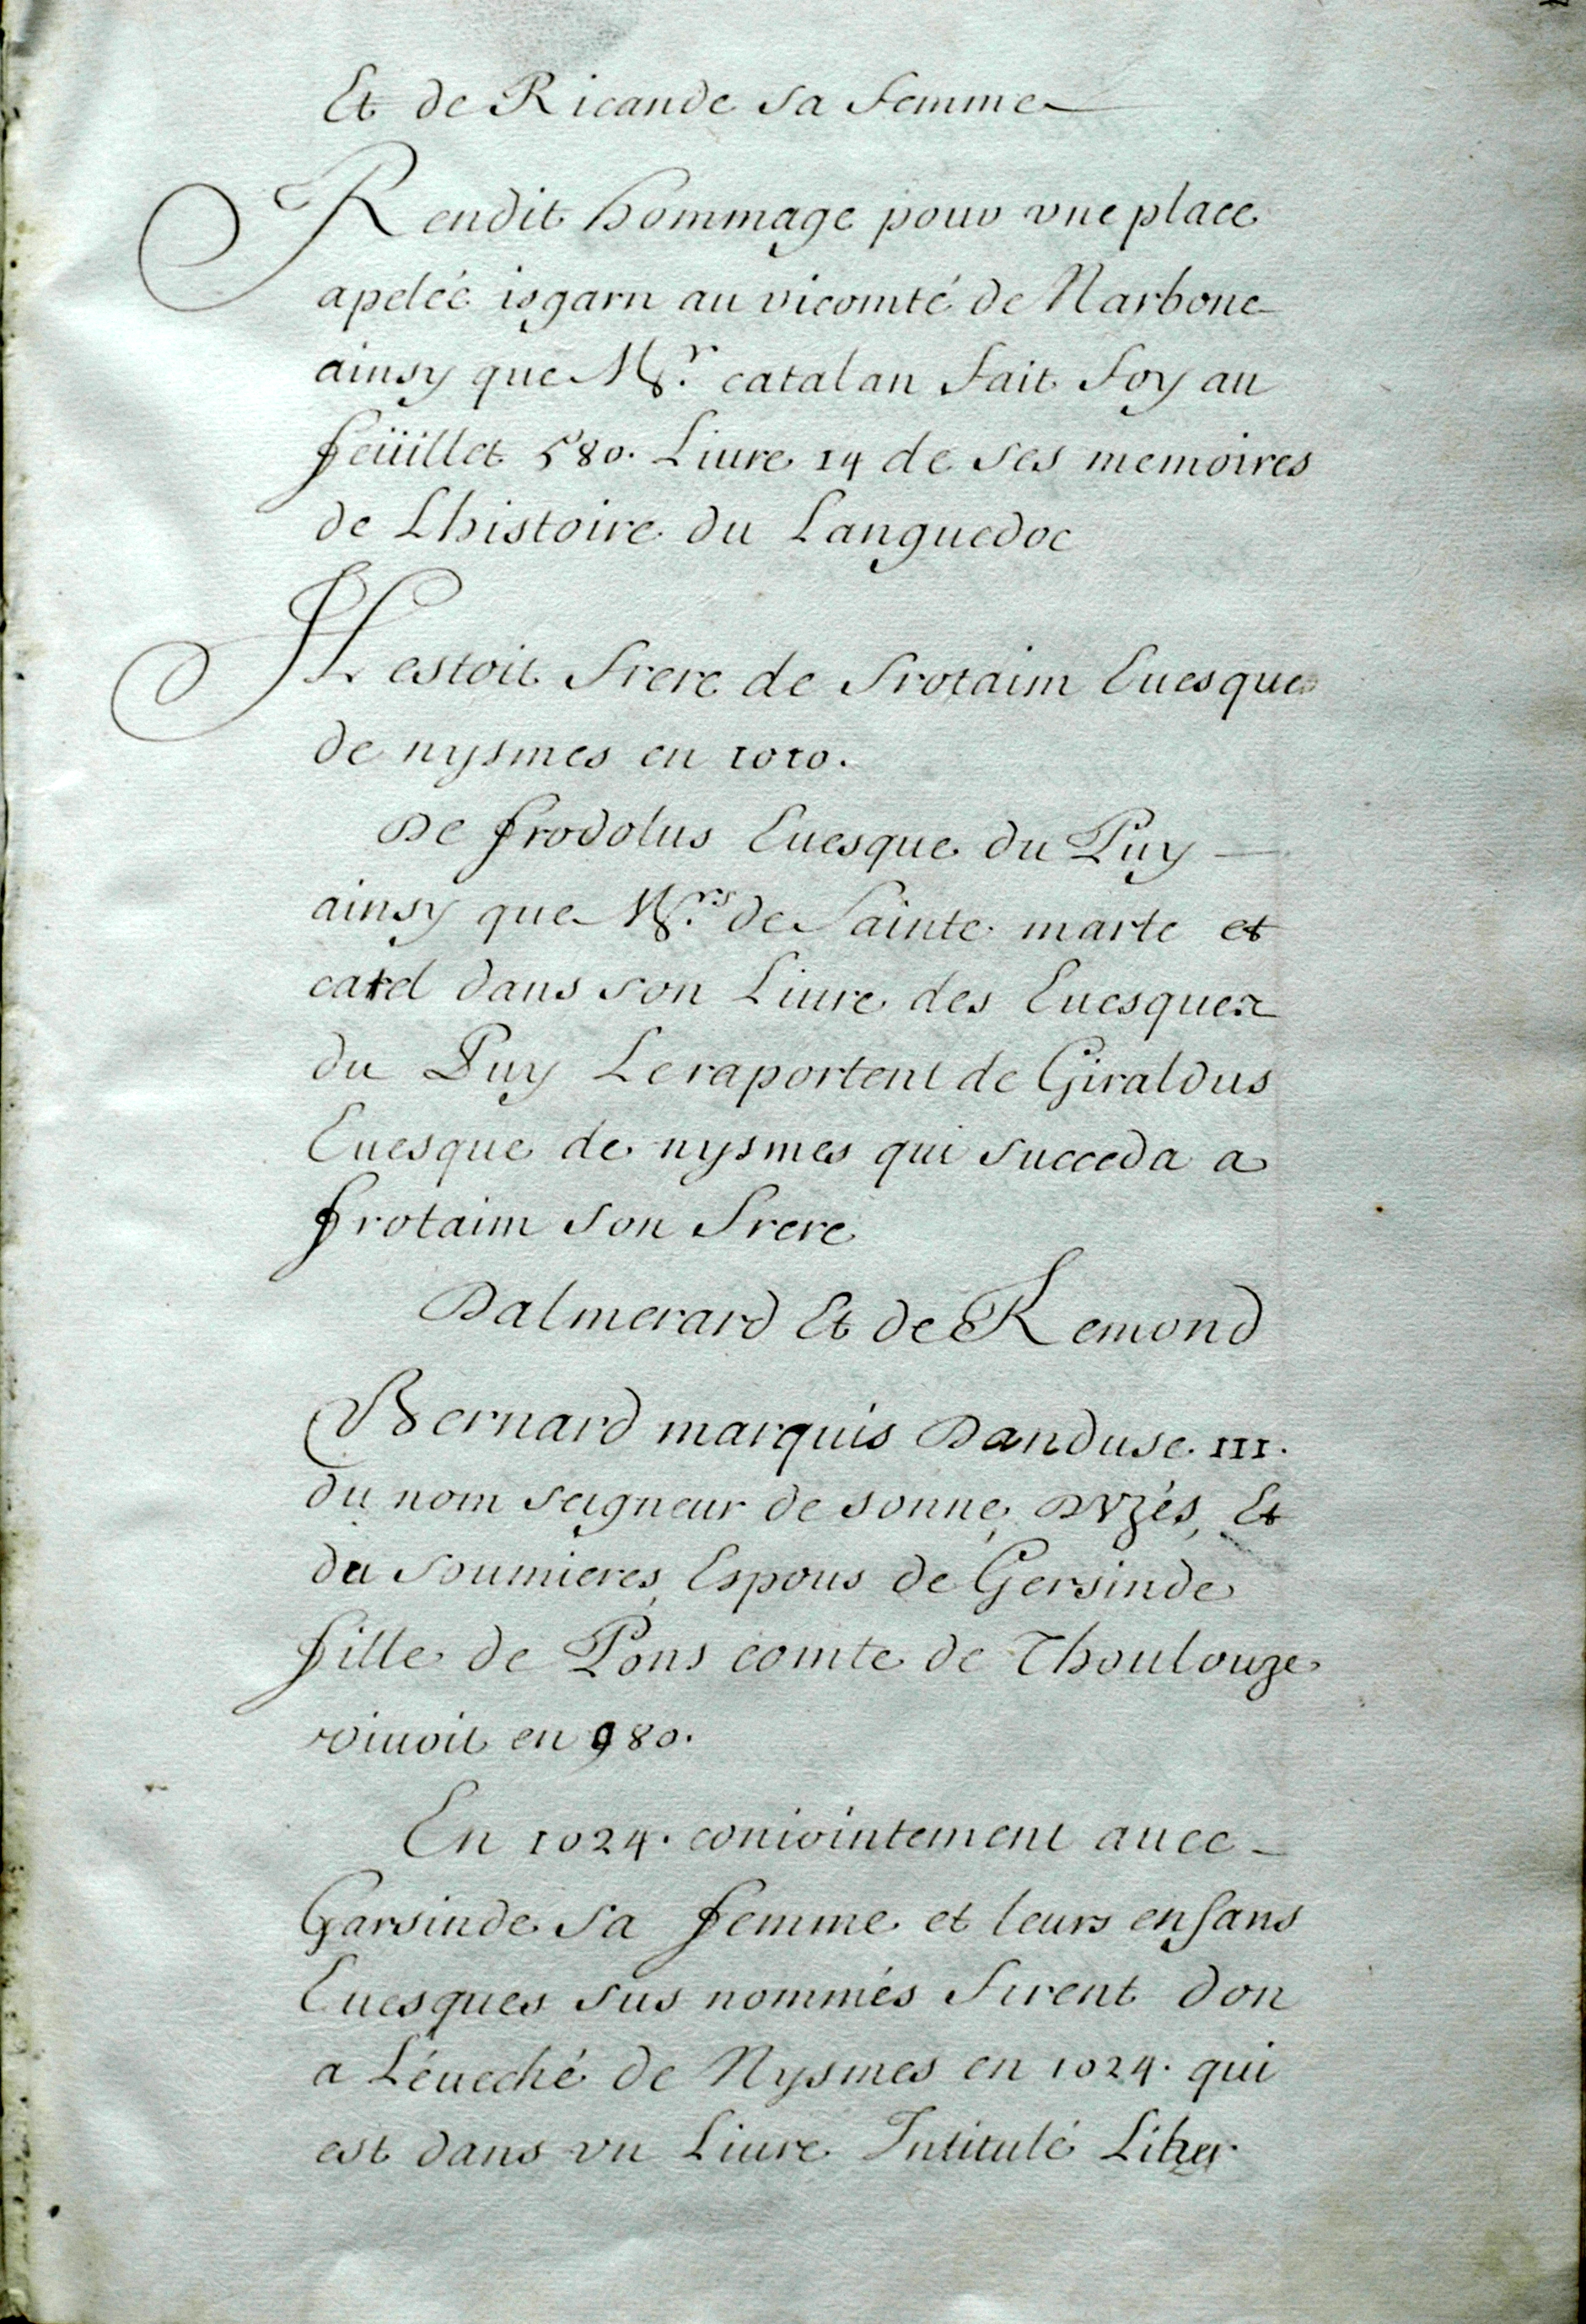 Et de Ricande sa femme
Rendit hommage pour vne place
apelée isgarn au vicomté de Narbone
ainsy que Mr. catalan fait foy au
feüillet 580. Liure 14 de ses memoires
de Lhistoire du Languedoc
IL estoit frere de frotaim Euesque
de nysmes en 1010.
De frodolus Euesque du Puy
ainsy que Mrs. de Sainte marte et
catel dans son Liure des Euesques
du Puy Le raportent de Giraldus
Euesque de nysmes qui succeda a
frotaim son frere
Dalmerard Et de Remond
Bernard marquis Danduse III.
du nom seigneur de sonne, DVzés, Et
de soumieres, Espous de Gersinde
fille de Pons comte de Thoulouze
viuoit en 980.
En 1024. coniointement auec
Garsinde sa femme et leurs enfans
Euesques sus nommés firent don
a Léueché de Nysmes en 1024. qui
est dans vn Liure Intitulé Liber